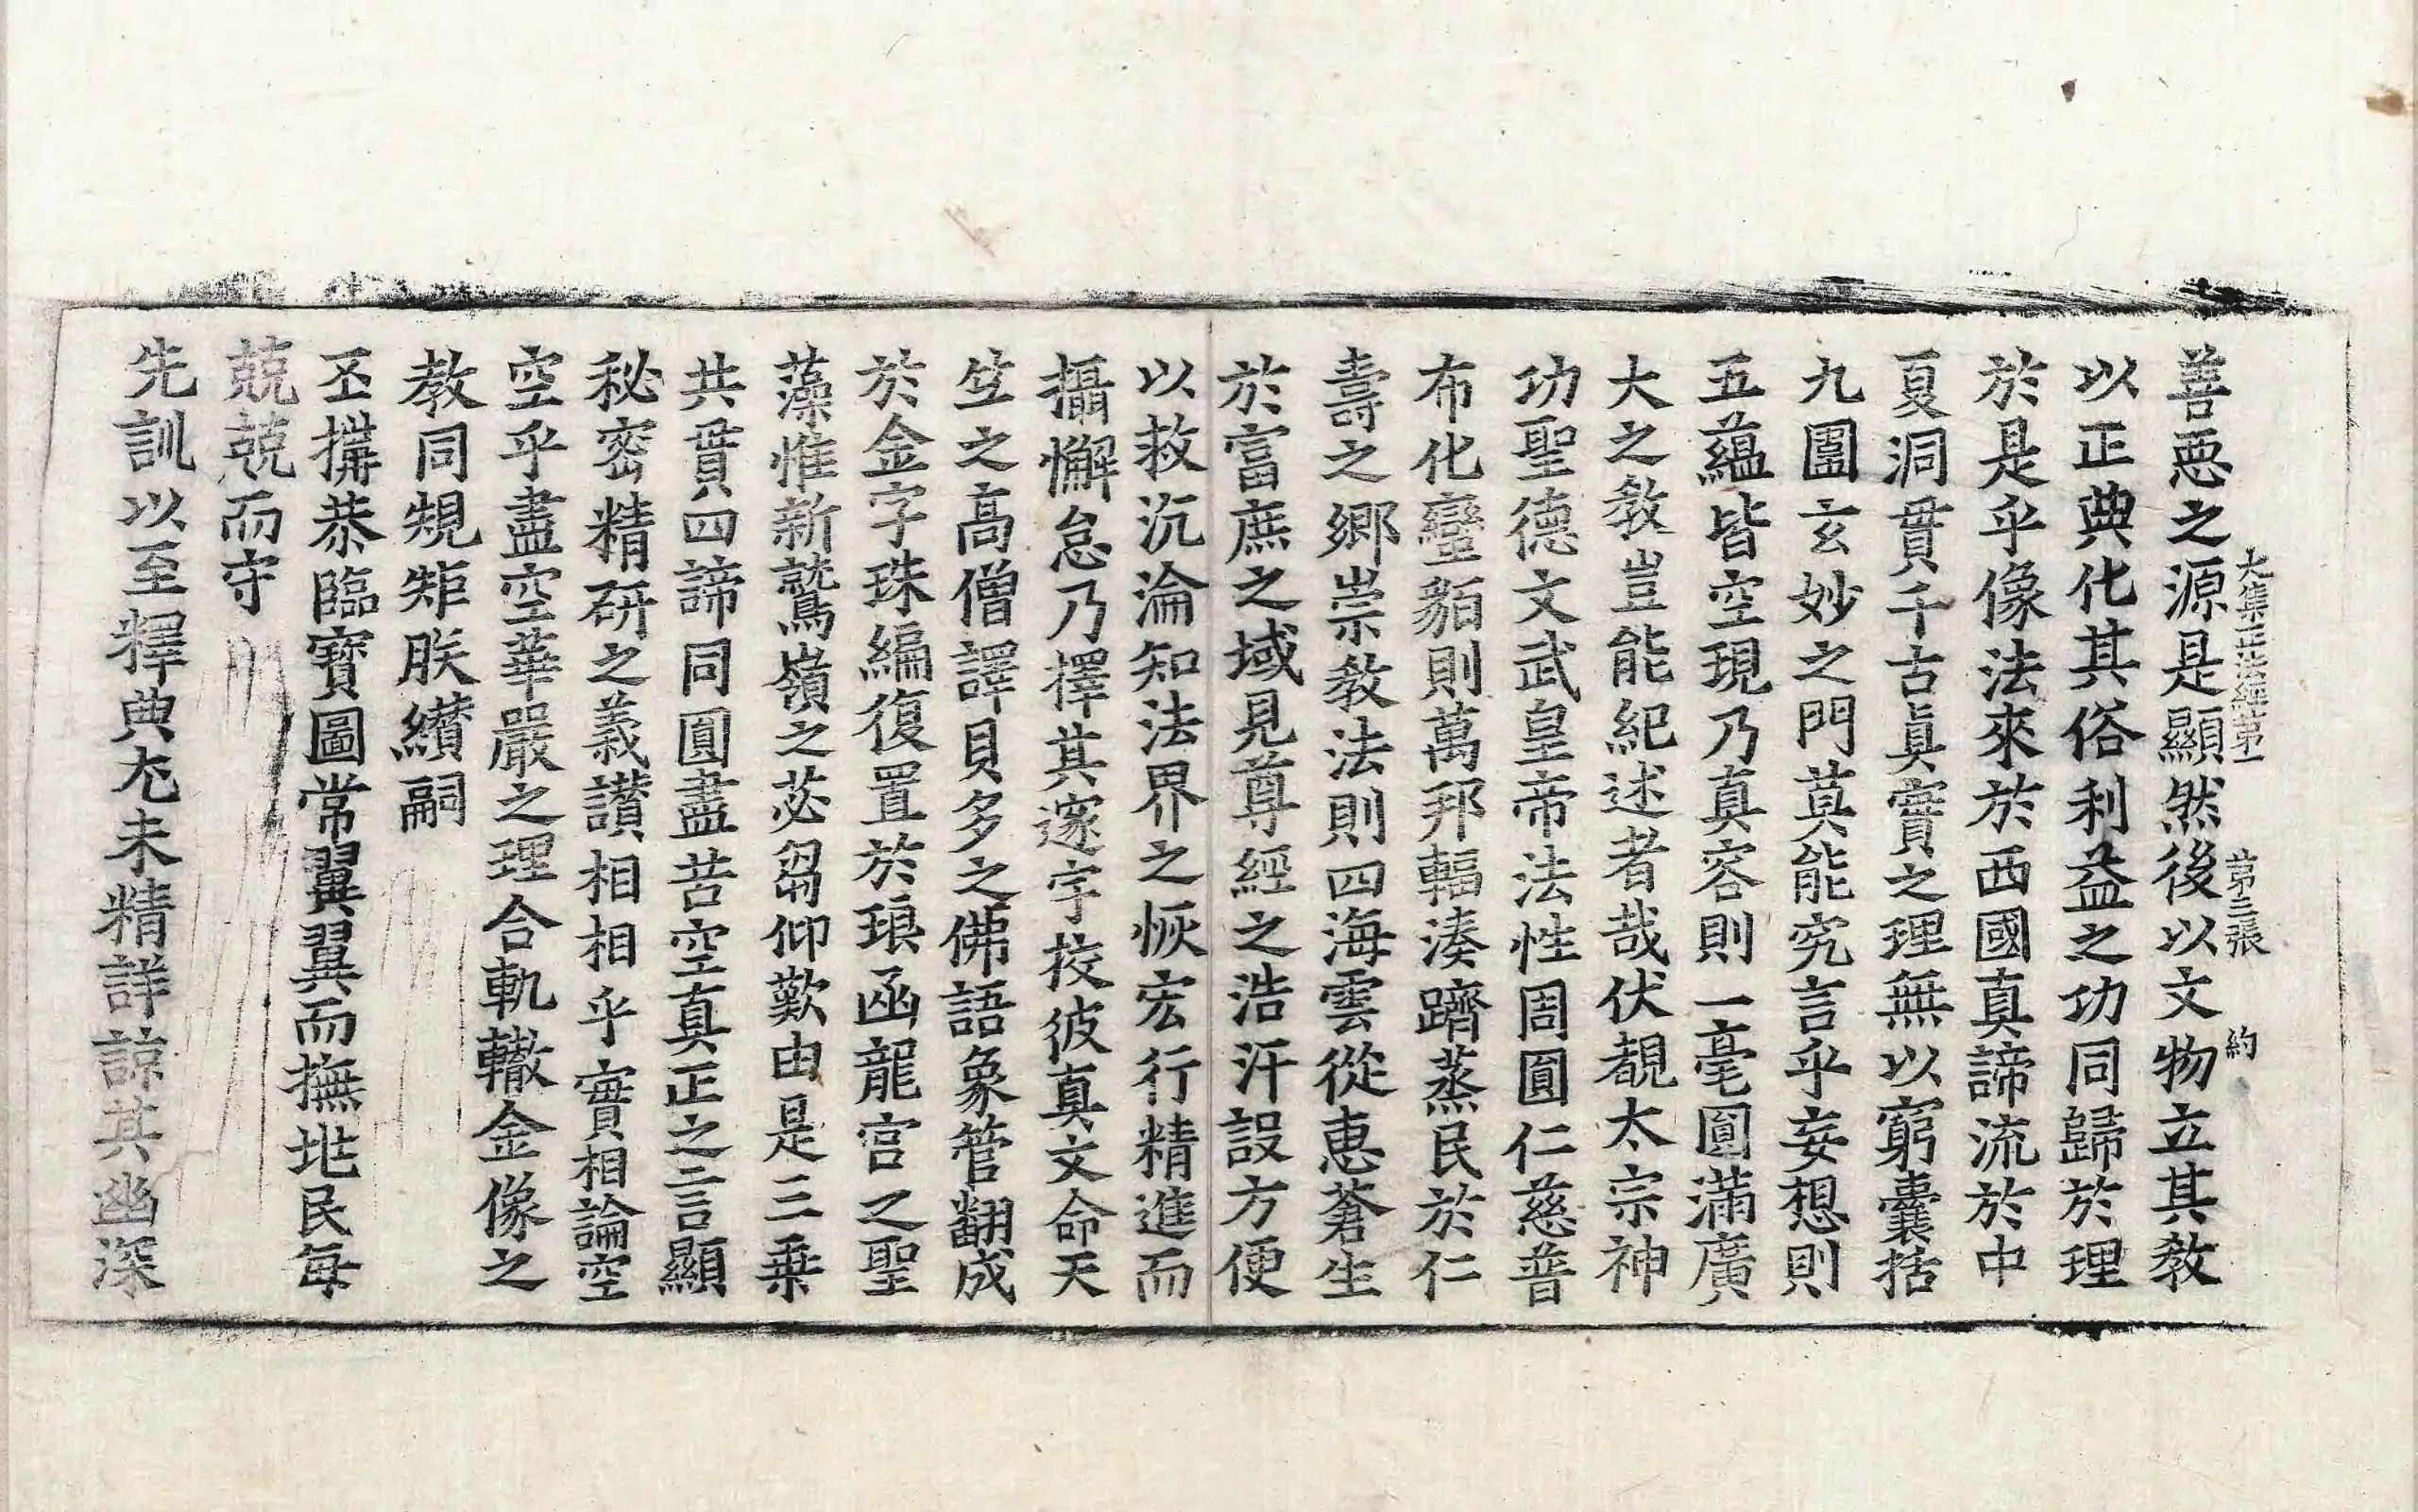 大集正法經第一　第三張　約
善惡之源是顯然後以文物立其教
以正典化其俗利益之功同歸於理
於是乎像法來於西國真諦流於中
夏洞貫千古眞實之理無以窮囊括
九圍玄妙之門莫能究言乎妄想則
五蘊皆空現乃真容則一毫圓滿廣
大之教豈能紀述者哉伏覩太宗神
功聖德文武皇帝法性周圓仁慈普
布化蠻貊則萬邦輻湊躋蒸民於仁
壽之鄉崇教法則四海雲從惠蒼生
於富庶之域見尊經之浩汗設方便
以救沉淪知法界之恢宏行精進而
攝懈怠乃擇其邃宇挍彼真文命天
竺之高僧譯貝多之佛語象管翻成
於金字珠編復置於琅函龍宮之聖
藻惟新鷲嶺之苾芻仰歎由是三乗
共貫四諦同圓盡苦空真正之言顯
秘密精研之義讃相相乎實相論空
空乎盡空華嚴之理合軌轍金像之
教同規矩朕纉嗣
丕搆恭臨寶圖常翼翼而撫兆民每
兢兢而守
先訓以至釋典尤未精詳諒其幽深